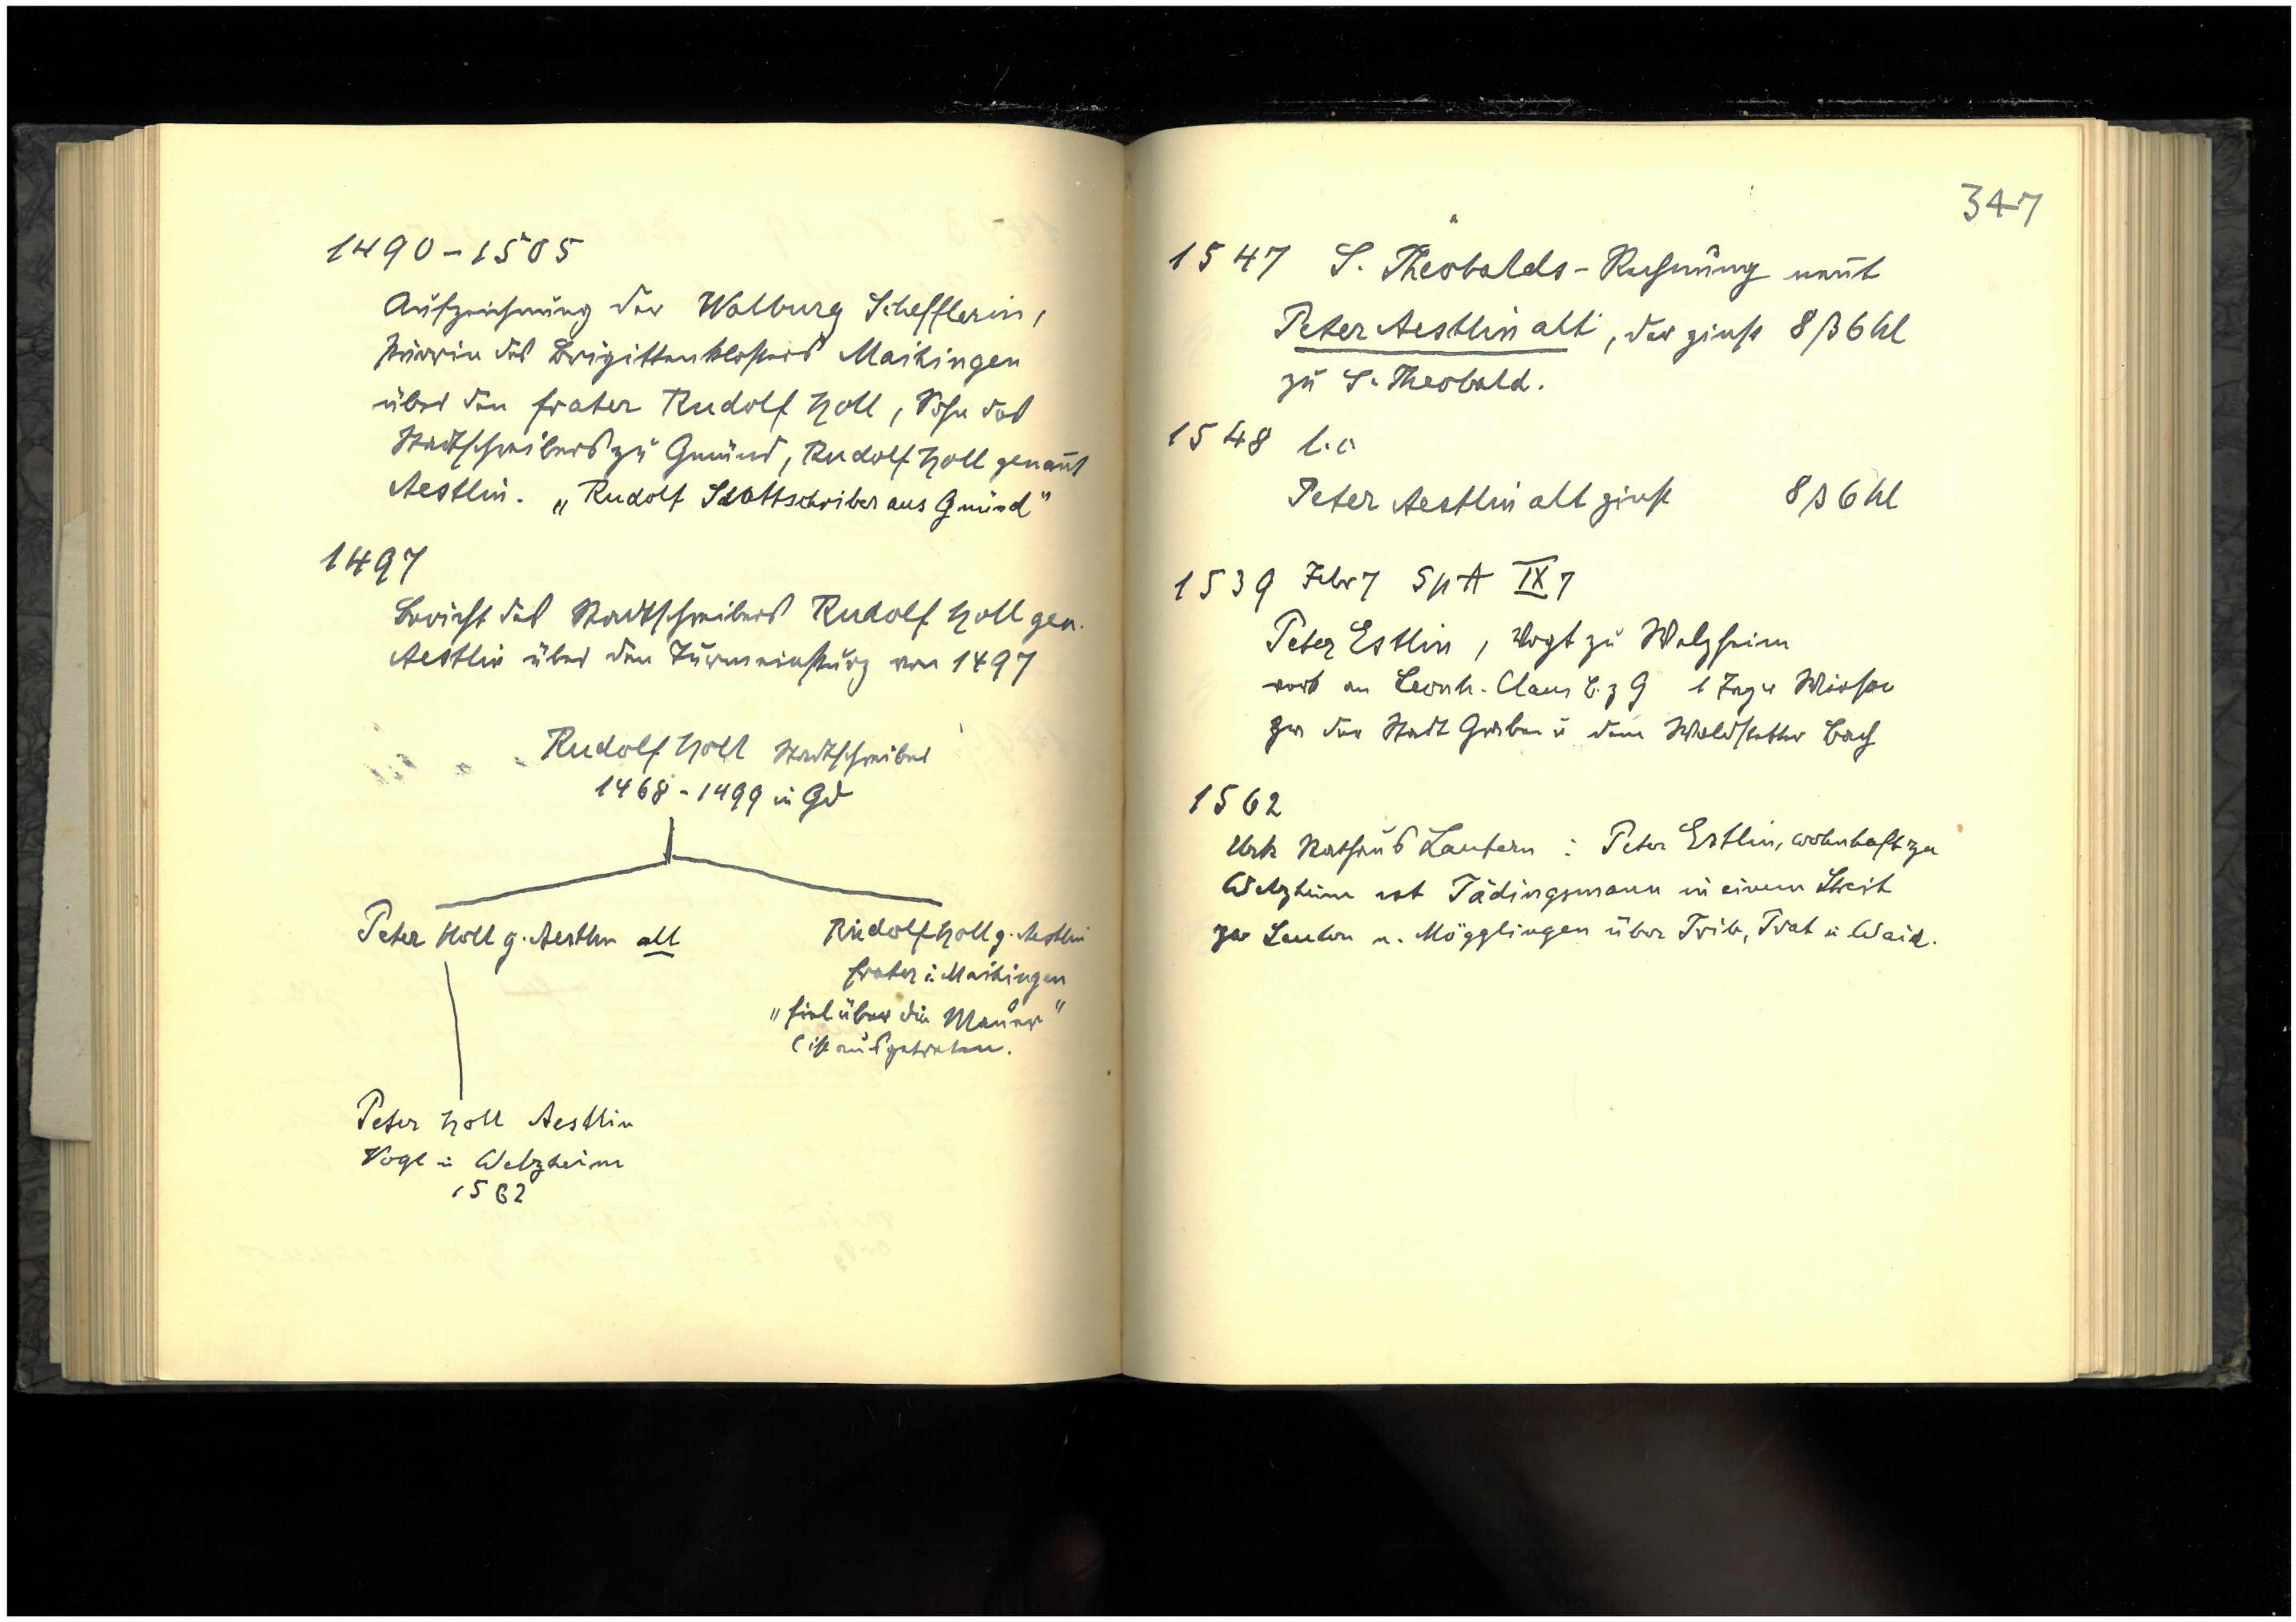 1490-1505
Aufzeichnung der Walburg Schefflerin,
Priorin des Brigittenklosters Maihingen
über den frater Rudolf Holl, Sohn des
Stadtschreibers zu Gmünd, Rudolf Holl genan̄t
Aestlin. „Rudolf Stattschriber aus Gmünd"
1497
Bericht des Stadtschreibers Rudolf Holl gen.
Aestlin über den Turmeinsturz von 1497
Rudolf Holl Stadtschreiber
1468-1499 in Gd
Peter Holl g. Aestlin alt
Rudolf Holl g. Aestlin
frater i. Maihingen
„fiel über die Mauer"
(ist ausgetreten.
Peter Holl Aestlin
Vogt in Welzheim
1562
347
1547 S. Theobalds-Rechnung nen̄t
Peter Aestlin alt, der zinst 8 ß 6 hl
zu S. Theobald.
1548 l.c
Peter Aestlin alt zinst 8 ß 6 hl
1539 Febr 7 SpA IX 7
Peter Estlin, Vogt zu Welzheim
verk an Leonh. Claus B. z G 1 Tagw Wiesen
zw der Stadt Graben u dem Waldstetter Bach
1562
Urk Rathaus Lautern: Peter Estlin, wohnhaft zu
Welzheim ist Tädingsmann in einem Streit
zw Lautern u. Mögglingen über Trib, Trat u Waid.